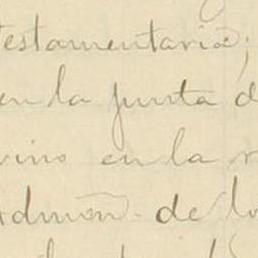 testamentaria;
en la junta d
vino en la r
Admón. de lo